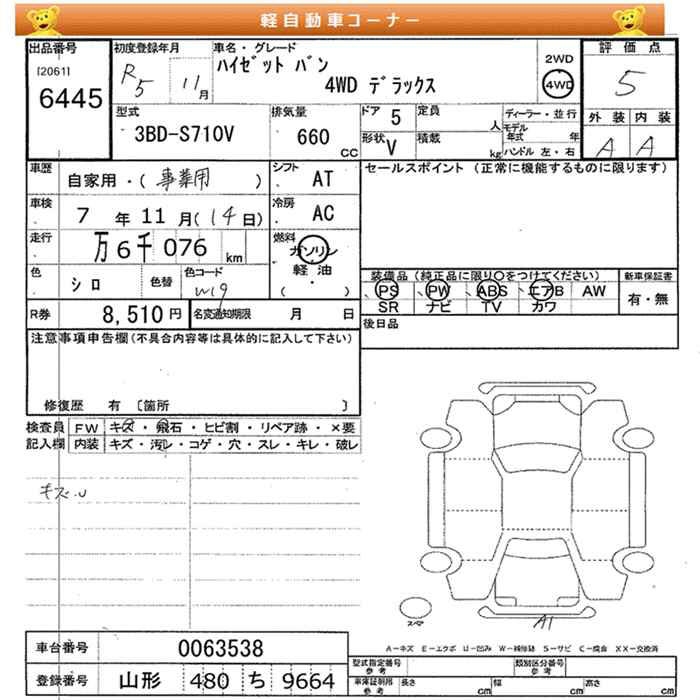 軽自動車コーナー
出品番号
[2061]
6445
初度登録年月
R5 11月
車名・グレード
ハイゼット バン
4WD デラックス
2WD
4WD
評価点
5
外装 内装
A A
型式
3BD-S710V
排気量
660 CC
ドア 5
形状 V
定員 人
積載 kg
ディーラー・並行
モデル年式 年
ハンドル 左・右
車歴
自家用・(事業用)
シフト AT
車検
7年11月(14日)
冷房 AC
走行
万6千076km
燃料
ガソリン
軽油
・
( )
色
シロ
色替
色コード
W19
R券 8,510円
名変通知期限 月 日
セールスポイント(正常に機能するものに限ります)
装備品(純正品に限り○をつけてください)
PS PW ABS エアB AW
SR ナビ TV カワ
新車保証書
有・無
後日品
注意事項申告欄(不具合内容等は具体的に記入して下さい)
修復歴 有 [箇所 ]
検査員記入欄
FW キズ・飛石・ヒビ割・リペア跡・×要
内装 キズ・汚レ・コゲ・穴・スレ・キレ・破レ
キズ.U
A1
スペア
A-キズ E-エクボ U-凹み W-補修跡 S-サビ C-腐食 XX-交換済
車台番号 0063538
登録番号 山形 480 ち 9664
型式指定番号 参考
類別区分番号 参考
車庫証明用 参考 長さ cm 幅 cm 高さ cm